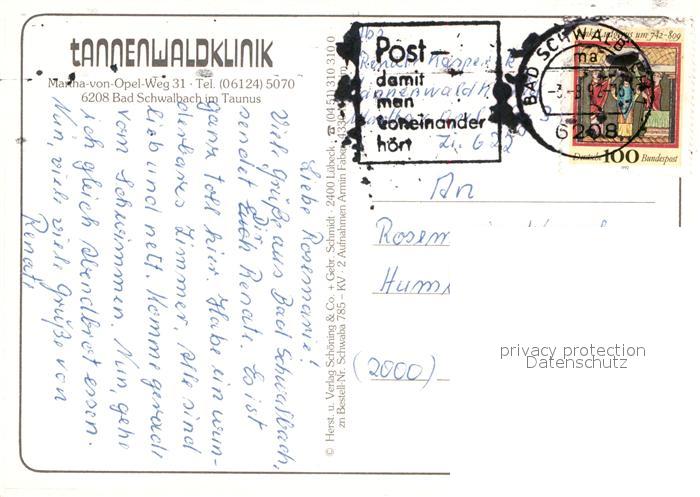 TANNENWALDKLINIK
Martha-von-Opel-Weg 31 · Tel. (06124) 5070
6208 Bad Schwalbach im Taunus
Liebe Rosemarie!
Viele Grüße aus Bad Schwalbach,
sendet Dir Renate. Es ist
ganz toll hier. Habe ein wun-
derbares Zimmer. Alle sind
lieb und nett. Komme gerade
vom Schwimmen. Nun, gehe
ich gleich Abendbrot essen.
Nun, viele viele Grüße von
Renate
© Herst. u. Verlag Schöning & Co. + Gebr. Schmidt · 2400 Lübeck · ☎ (04 51) 310 310 0
zu Bestell-Nr. Schwaba 785 – KV · 2 Aufnahmen Armin Faber
Post –
damit
man
voneinander
hört
BAD SCHWALBACH
6208
742-899
Deutsche 100 Bundespost
Renate
Zi. 622
An
Rosem
(2000)
privacy protection
Datenschutz